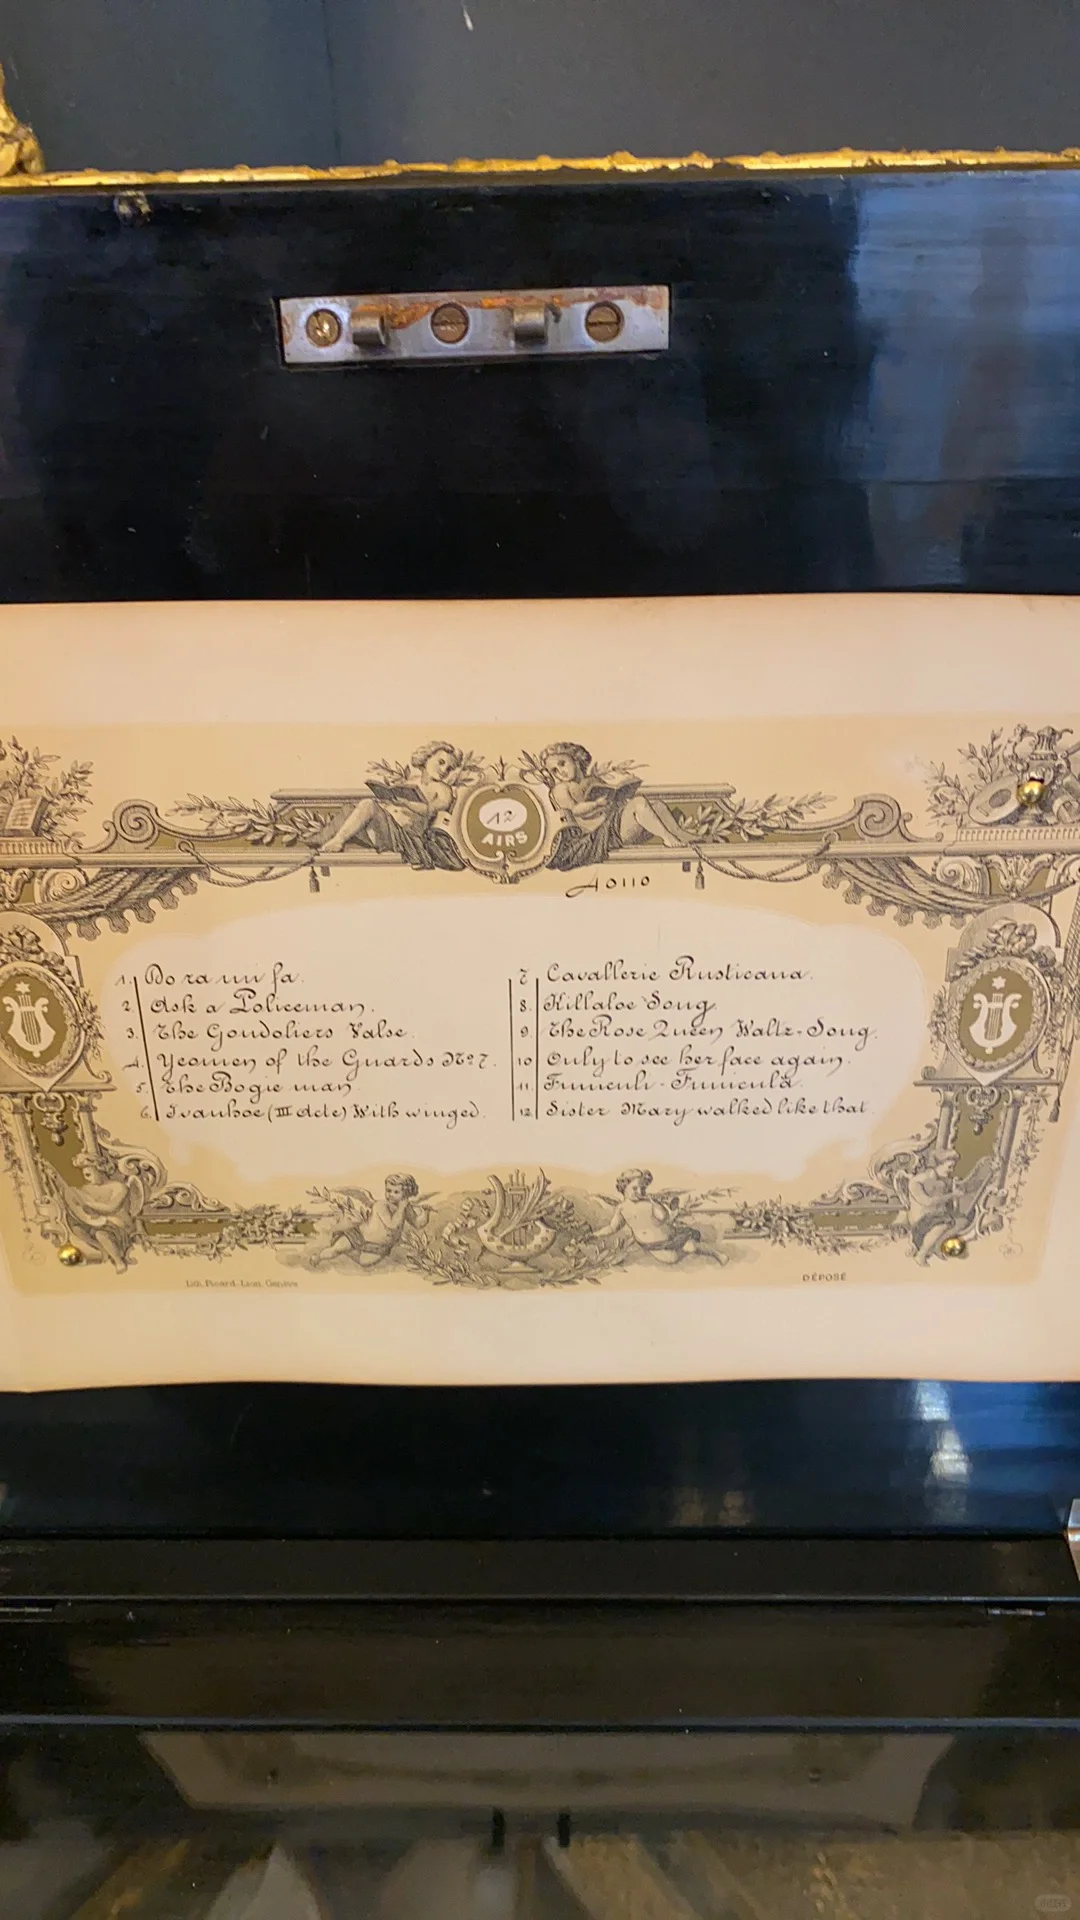 12
AIRS
40110
1. Do ra mi fa.
2. Ask a Policeman.
3. The Gondoliers Valse.
4. Yeomen of the Guards No 7.
5. The Bogie man
6. Ivanhoe (III acte) With winged.
7. Cavallerie Rusticana.
8. Killaloe Song.
9. The Rose Queen Waltz-Song.
10. Only to see her face again.
11. Funiculi-Funiculà.
12. Sister Mary walked like that
Lith. Picard-Lion, Genève
DÉPOSÉ